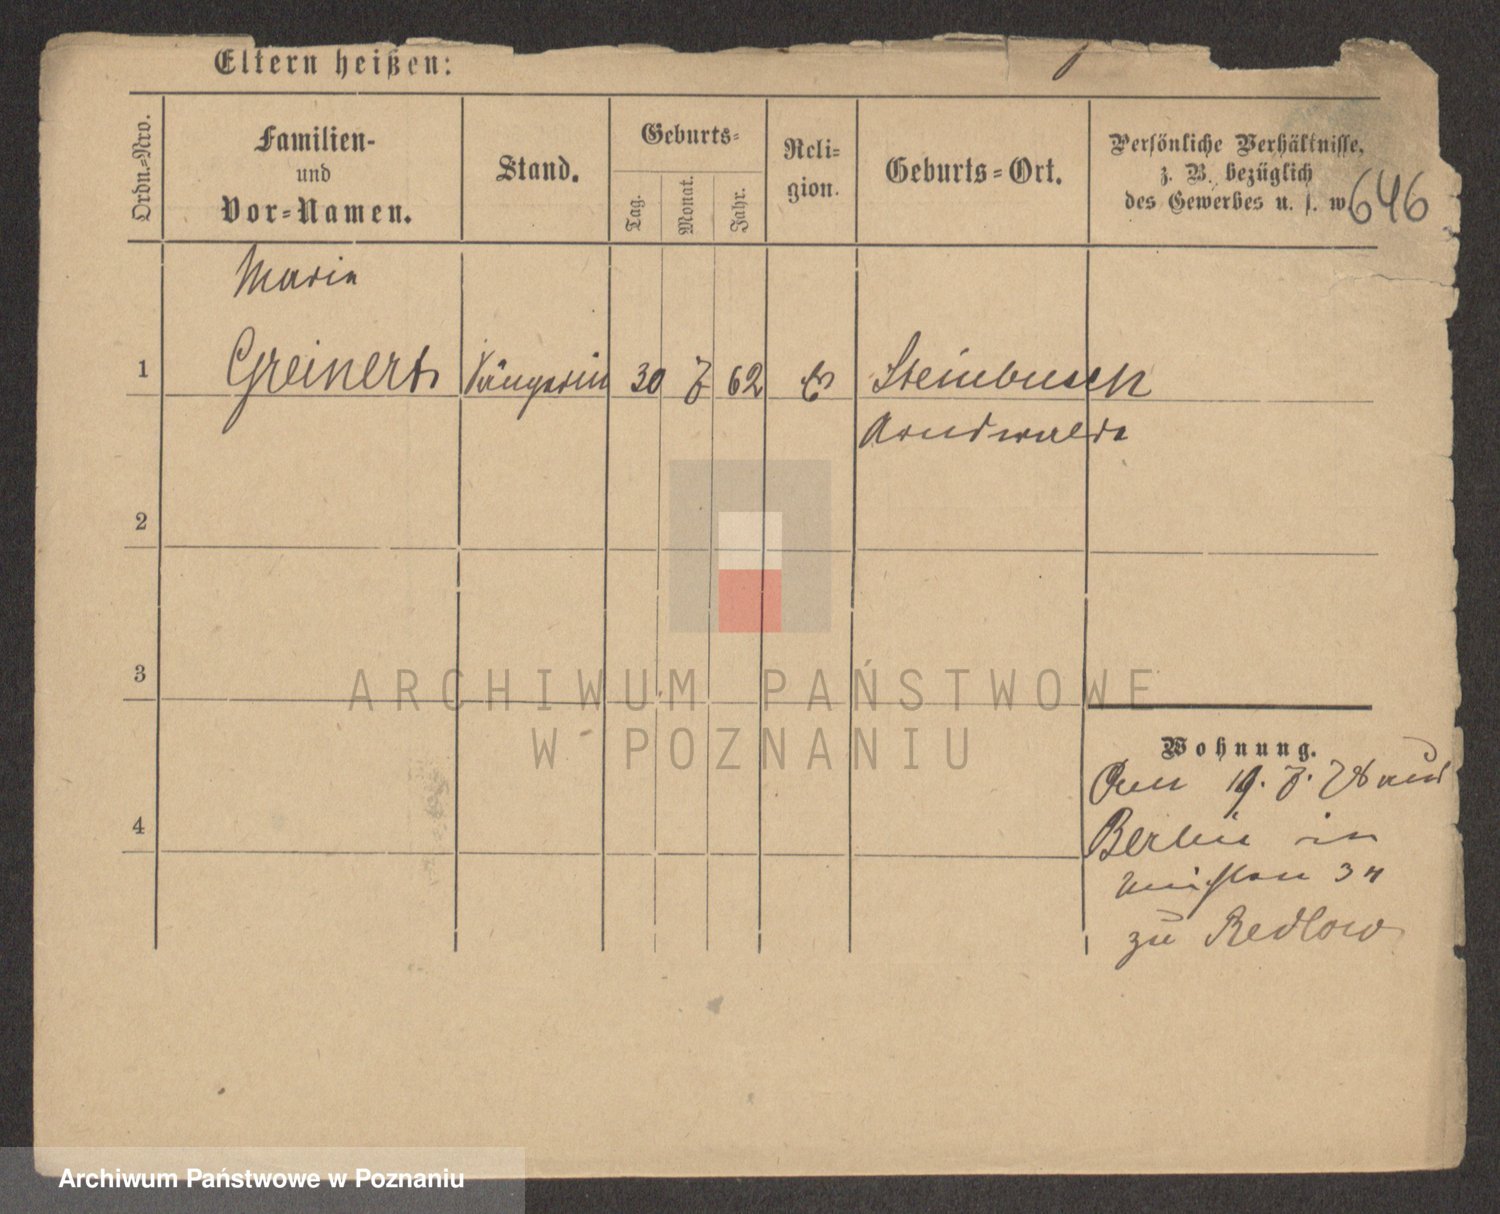 Eltern heißen:
Ordn.-Nro.
Familien-
und
Vor-Namen.
Stand.
Geburts-
Tag.
Monat.
Jahr.
Reli-
gion.
Geburts-Ort.
Persönliche Verhältnisse,
z. B. bezüglich
des Gewerbes u. s. w.
646
Marie
1 Greinert Sängerin 30 7 62 ev Steinbusch
Arnswalde
2
3
ARCHIWUM PAŃSTWOWE
W POZNANIU
Wohnung.
Den 19. 7. aus
4
Berlin in
34
zu Redlow
Archiwum Państwowe w Poznaniu